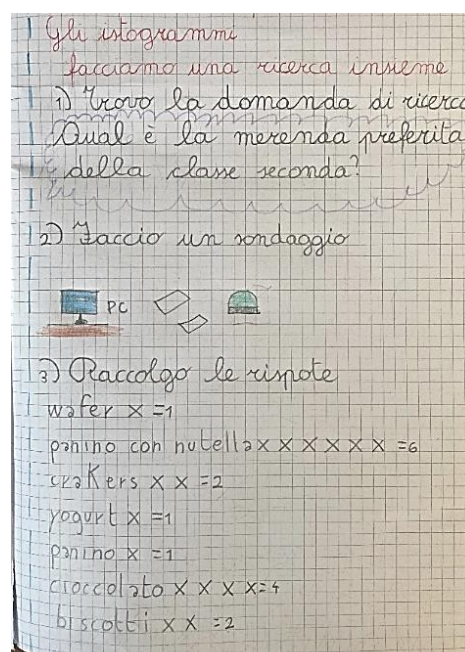 Gli istogrammi
facciamo una ricerca insieme
1) Trovo la domanda di ricerca
Qual è la merenda preferita
della classe seconda?
2) Faccio un sondaggio
PC
3) Raccolgo le rispote
wafer x =1
panino con nutella x x x x x x =6
crakers x x =2
yogurt x =1
panino x =1
cioccolato x x x x=4
biscotti x x =2